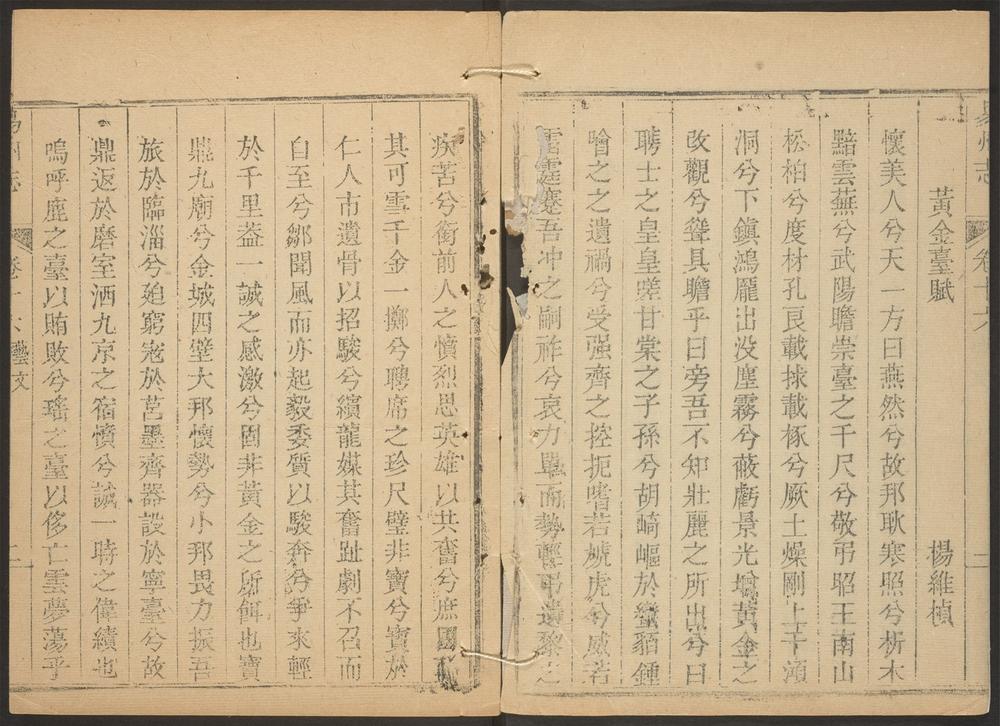 黃金臺賦
楊維楨
懷美人兮天一方曰燕然兮故邦耿寒照兮析木
黯雲蕪兮武陽瞻崇臺之千尺兮敬弔昭王南山
松柏兮度材孔良載捄載椓兮厥土燥剛上干澒
洞兮下鎮鴻厖出没塵霧兮蔽虧景光塊黃金之
改觀兮聳具瞻乎日旁吾不知壯麗之所出兮曰
聘士之皇皇嗟甘棠之子孫兮胡崎嶇於蠻貊鍾
噲之之遺禍兮受强齊之控扼嗜若虓虎兮威若
雷霆蹇吾冲之嗣祚兮哀力單而勢輕弔遺黎之
疾苦兮銜前人之憤烈思英雄以共奮兮庶國
其可雪千金一擲兮聘席之珍尺璧非寶兮寶於
仁人市遺骨以招駿兮繽龍媒其奮趾劇不召而
自至兮鄒聞風而亦起毅委質以駿奔兮爭來輕
於千里葢一誠之感激兮固非黃金之所餌也寶
鼎九廟兮金城四壁大邦懷勢兮小邦畏力振吾
旅於臨淄兮廹窮寇於莒墨齊器設於寧臺兮故
鼎返於磨室洒九京之宿憤兮誠一時之偉績也
嗚呼鹿之臺以賄敗兮瑤之臺以侈亡雲夢蕩乎
易州志
卷十六
藝文
二